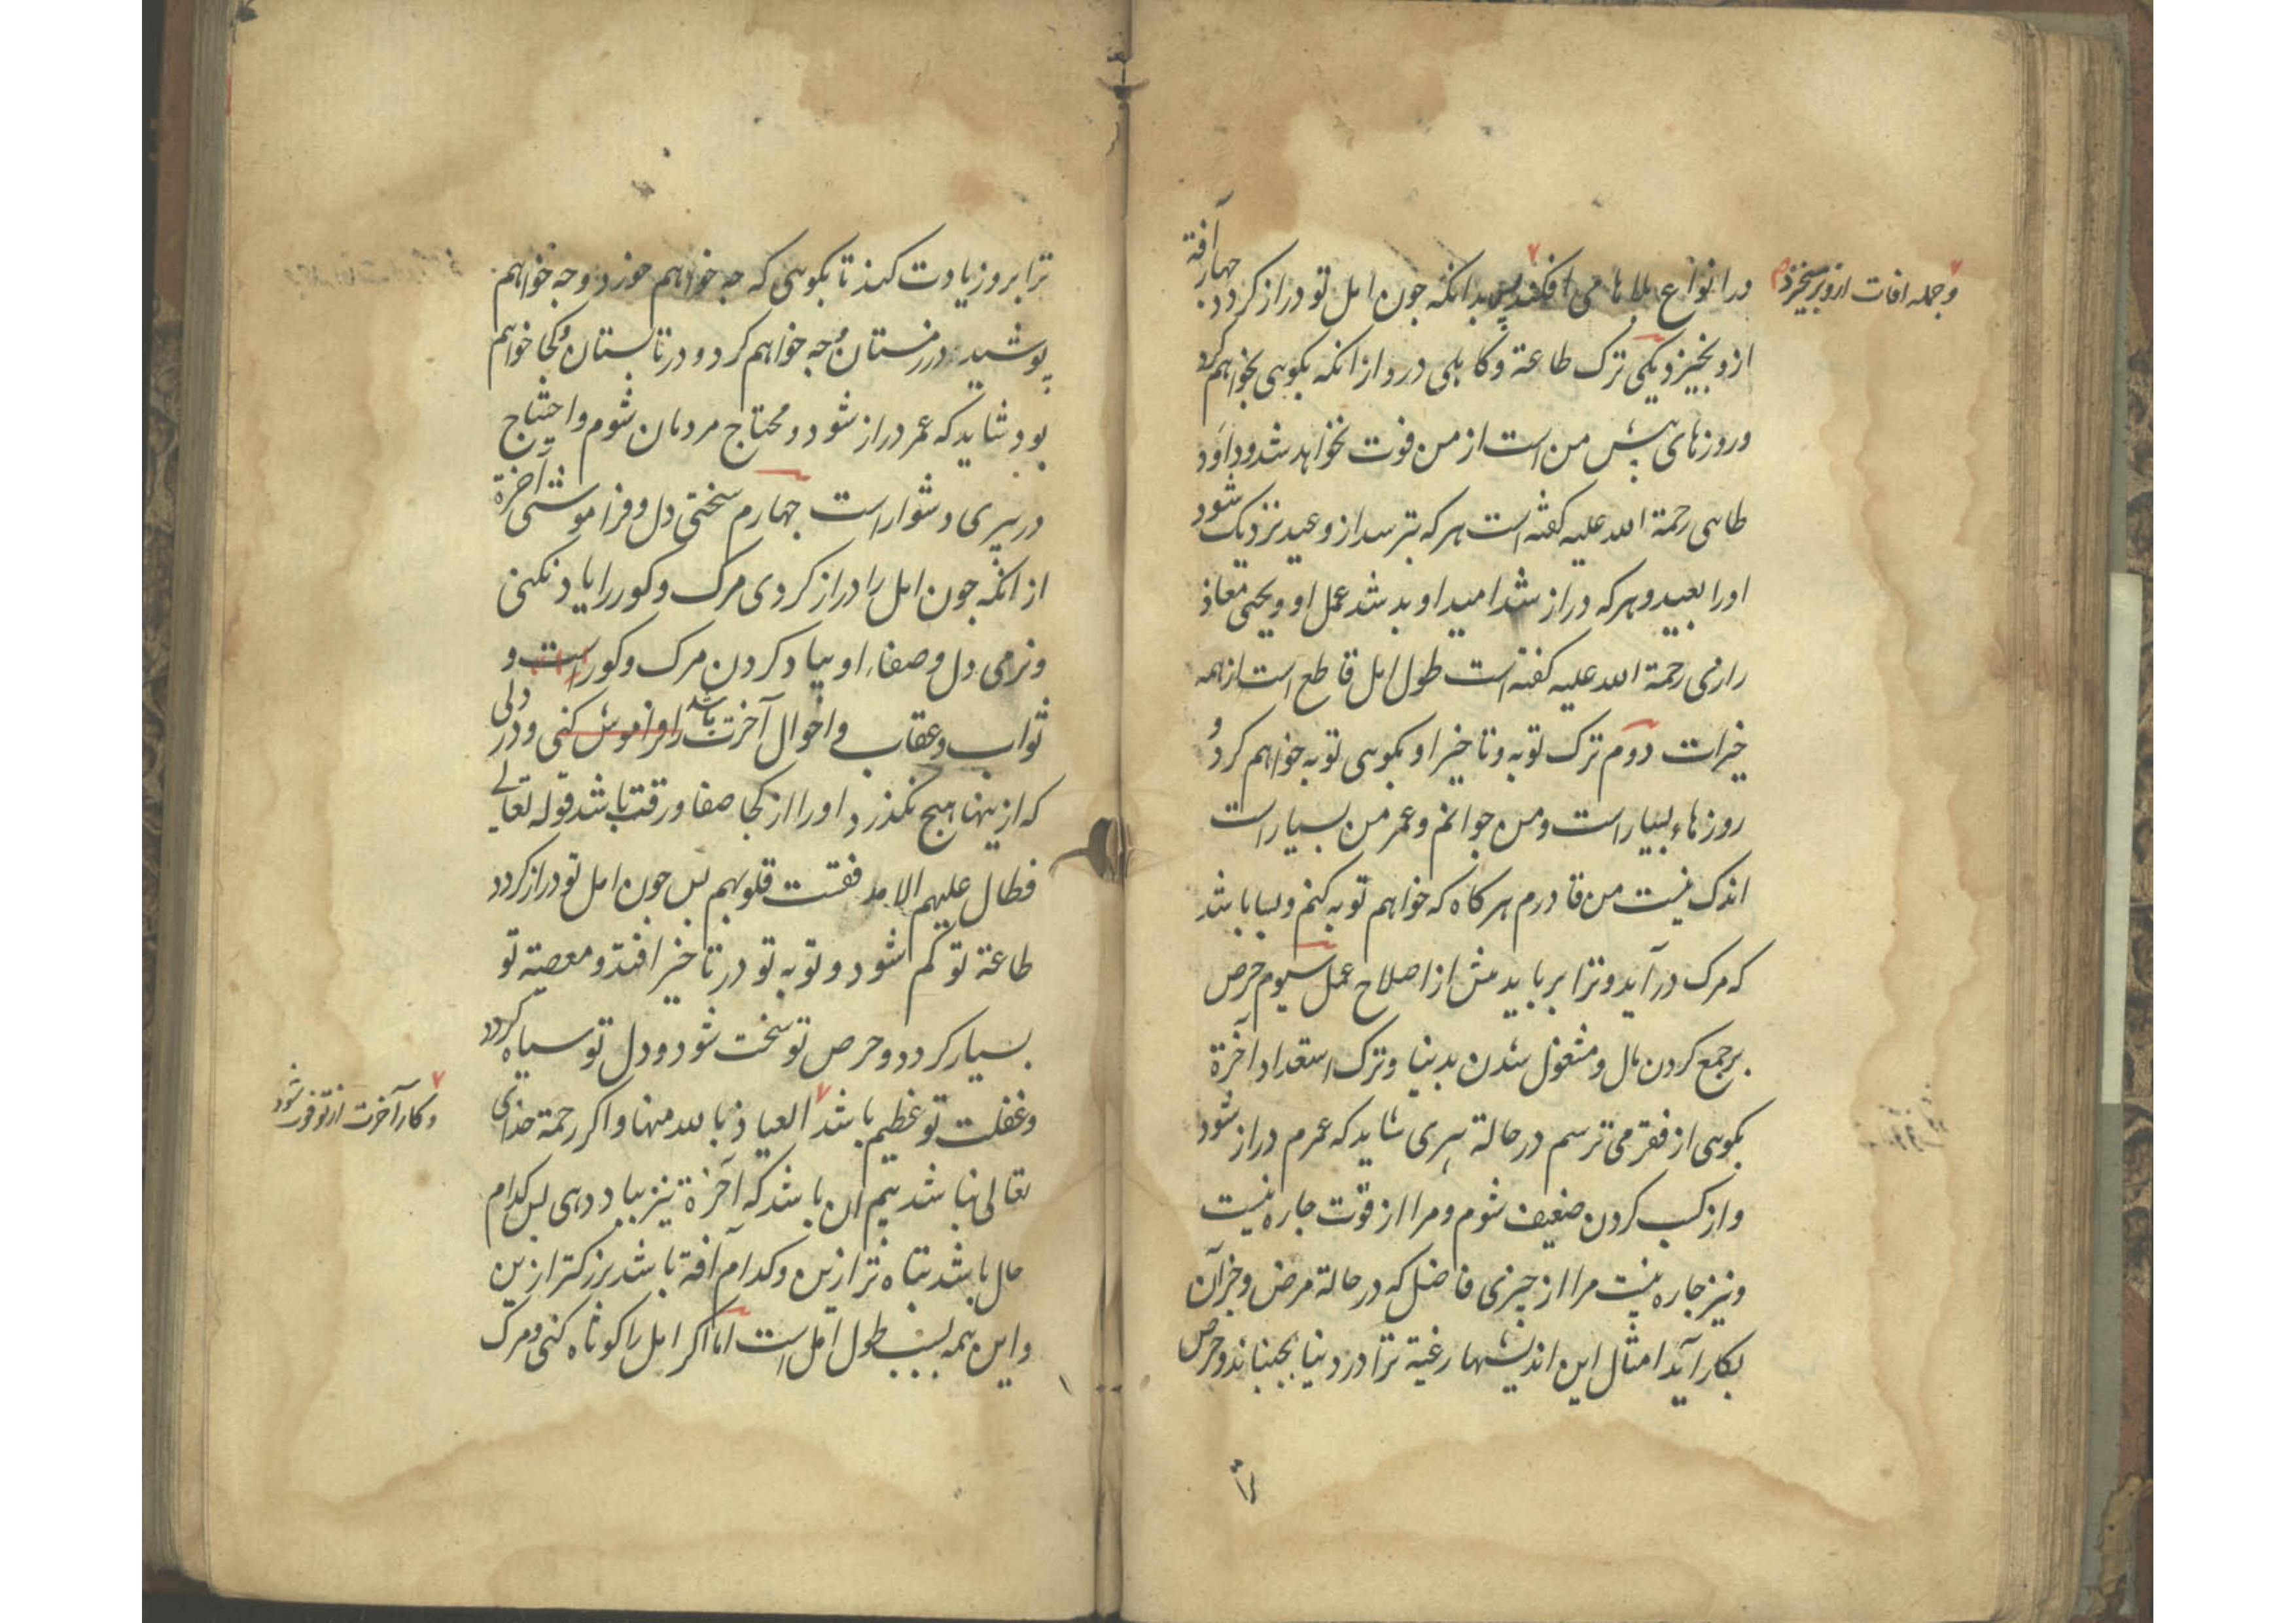 در انواع بلاها می افکند پس بدانکه جون امل تو دراز کردد جهار آفة
وجمله افات ازو برسخیزد
ازو بخیزد یکی ترک طاعة وکاهلی درو از انکه بکویی بخواهم کرد
وروزهای پیش من است از من فوت نخواهد شد وداود
طایی رحمة الله علیه کفته است هرکه بترسد از وعید نزدیک شود
اورا بعید وهرکه دراز شد امید او بد شد عمل او ویحیی معاذ
رازی رحمة الله علیه کفته است طول امل قاطع است از همه
خیرات دوم ترک توبه وتاخیر او بکویی توبه خواهم کرد و
روزهاء بسیار است ومن جوانم وعمر من بسیار است
اندک نیست من قادرم هرکاه که خواهم توبه کنم وبسا باشد
که مرک در آید وترا برباید پیش از اصلاح عمل سیوم حرص
بر جمع کردن مال ومشغول شدن بدنیا وترک استعداد آخرة
بکویی از فقر می ترسم در حالة پیری شاید که عمرم دراز شود
واز کسب کردن ضعیف شوم ومرا از قوت جاره نیست
ونیز جاره نیست مرا از چیزی فاضل که در حالة مرض وجز آن
بکار آید امثال این اندیشها رغبة ترا در دنیا بجنباند وحرص
ترا
ترا بروز زیادت کند تا بکویی که جه خواهم خورد وجه خواهم
پوشید در زمستان وجه خواهم کرد ودر تابستان وکجا خواهم
بود شاید که عمر دراز شود ومحتاج مردمان شوم واحتیاج
در پیری دشوار است جهارم سختی دل وفراموشی آخرة
از انکه جون امل را دراز کردی مرک وکور را یاد نکنی
ونرمی دل وصفاء او بیاد کردن مرک وکور است و
ثواب وعقاب واحوال آخرت باشد را فراموش کنی ودر دلی
که از ینها هیج نکذرد اورا از کجا صفا ورقت باشد قوله تعالے
فطال علیهم الامد فقست قلوبهم پس جون امل تو دراز کردد
طاعة تو کم شود وتوبه تو در تاخیر افتد ومعصیة تو
بسیار کردد وحرص تو سخت شود ودل تو سیاه کردد
وغفلت تو عظیم باشد العیاذ بالله منها واکر رحمة خدای
وکار آخرت از تو فوت شود
تعالی نباشد بیم ان باشد که آخرة نیز بباد دهی پس کدام
حال باشد تباه تر ازین وکدام آفة باشد بزرکتر ازین
واین همه بسبب طول امل است اما اکر امل را کوتاه کنی ومرک